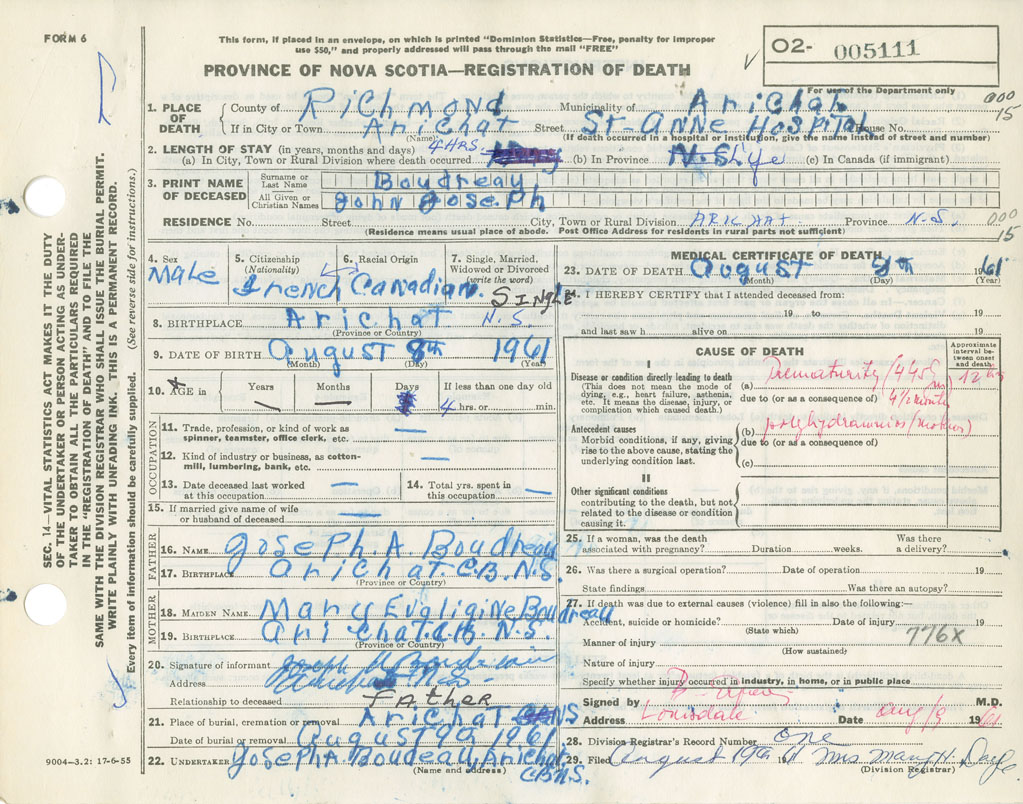 FORM 6
This form, if placed in an envelope, on which is printed "Dominion Statistics—Free, penalty for improper
use $50," and properly addressed will pass through the mail "FREE"
O2- 005111
PROVINCE OF NOVA SCOTIA—REGISTRATION OF DEATH
For use of the Department only
000
15
1. PLACE OF DEATH County of Richmond Municipality of Arichat
If in City or Town Arichat Street St-Anne Hospital House No.
(Name) (If death occurred in a hospital or institution, give the name instead of street and number)
2. LENGTH OF STAY (in years, months and days) 4 HRS.
(a) In City, Town or Rural Division where death occurred (b) In Province N.S Life (c) In Canada (if immigrant)
3. PRINT NAME OF DECEASED Surname or Last Name Boudreau
All Given or Christian Names John Joseph
RESIDENCE No. Street City, Town or Rural Division ARICHAT Province N.S.
(Residence means usual place of abode. Post Office Address for residents in rural parts not sufficient)
000
15
4. Sex Male
5. Citizenship (Nationality) 6. Racial Origin French Canadian
7. Single, Married, Widowed or Divorced (write the word) SINGLE
8. BIRTHPLACE Arichat N.S.
(Province or Country)
9. DATE OF BIRTH August 8th 1961
(Month) (Day) (Year)
10. AGE in Years Months Days If less than one day old
4 hrs. or min.
OCCUPATION
11. Trade, profession, or kind of work as spinner, teamster, office clerk, etc. —
12. Kind of industry or business, as cotton-mill, lumbering, bank, etc. —
13. Date deceased last worked at this occupation —
14. Total yrs. spent in this occupation —
15. If married give name of wife or husband of deceased —
FATHER
16. NAME Joseph. A. Boudreau
17. BIRTHPLACE Arichat. C.B. N.S.
(Province or Country)
MOTHER
18. MAIDEN NAME Mary Evaligine Boudreau
19. BIRTHPLACE Arichat. C.B. N.S.
(Province or Country)
20. Signature of informant Joseph A Boudreau
Address Arichat N.S.
Relationship to deceased FATHER
21. Place of burial, cremation or removal Arichat NS
Date of burial or removal August 9th 1961
22. UNDERTAKER Joseph A Boudeau, Arichat
C.B N.S.
(Name and address)
9004-3.2: 17-6-55
MEDICAL CERTIFICATE OF DEATH
23. DATE OF DEATH August 8th 1961
(Month) (Day) (Year)
24. I HEREBY CERTIFY that I attended deceased from:
19 to 19
and last saw h alive on 19
CAUSE OF DEATH
Approximate interval between onset and death
I
Disease or condition directly leading to death
(This does not mean the mode of dying, e.g., heart failure, asthenia, etc. It means the disease, injury, or complication which caused death.)
(a) Prematurity 12 hrs
due to (or as a consequence of)
Antecedent causes
Morbid conditions, if any, giving rise to the above cause, stating the underlying condition last.
(b) polyhydramnios (mother)
due to (or as a consequence of)
(c)
II
Other significant conditions
contributing to the death, but not related to the disease or condition causing it.
25. If a woman, was the death associated with pregnancy? Duration weeks. Was there a delivery?
26. Was there a surgical operation? Date of operation 19
State findings Was there an autopsy?
27. If death was due to external causes (violence) fill in also the following:—
Accident, suicide or homicide? Date of injury 19
(State which)
776X
Manner of injury
(How sustained)
Nature of injury
Specify whether injury occurred in industry, in home, or in public place
Signed by M.D.
Address Louisdale Date Aug/9 1961
28. Division Registrar's Record Number One
29. Filed August 19th 1961 Mrs Mary H.
(Division Registrar)
SEC. 14—VITAL STATISTICS ACT MAKES IT THE DUTY
OF THE UNDERTAKER OR PERSON ACTING AS UNDER-
TAKER TO OBTAIN ALL THE PARTICULARS REQUIRED
IN THE "REGISTRATION OF DEATH" AND TO FILE THE
SAME WITH THE DIVISION REGISTRAR WHO SHALL ISSUE THE BURIAL PERMIT.
WRITE PLAINLY WITH UNFADING INK. THIS IS A PERMANENT RECORD.
Every item of information should be carefully supplied. (See reverse side for instructions.)